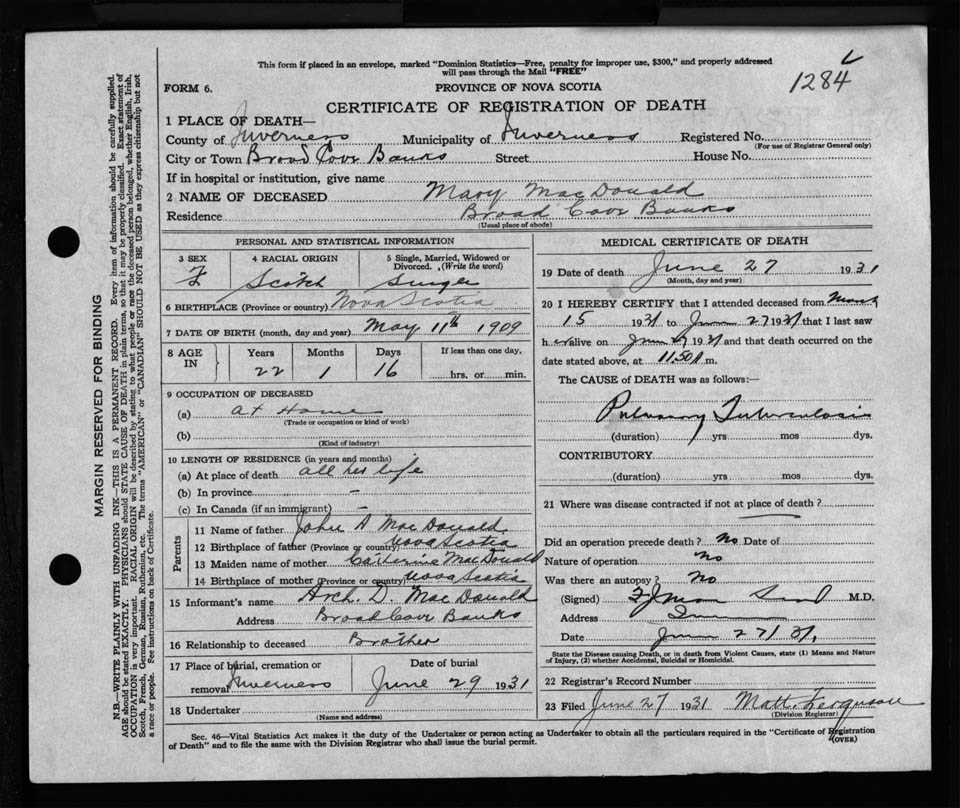 This form if placed in an envelope, marked "Dominion Statistics—Free, penalty for improper use, $300," and properly addressed
will pass through the Mail "FREE"
1284
FORM 6.
PROVINCE OF NOVA SCOTIA
CERTIFICATE OF REGISTRATION OF DEATH
1 PLACE OF DEATH—
County of Inverness Municipality of Inverness Registered No.
(For use of Registrar General only)
City or Town Broad Cove Banks Street House No.
If in hospital or institution, give name
2 NAME OF DECEASED Mary MacDonald
Residence Broad Cove Banks
(Usual place of abode)
PERSONAL AND STATISTICAL INFORMATION
3 SEX 4 RACIAL ORIGIN 5 Single, Married, Widowed or
Divorced. (Write the word)
F Scotch Single
6 BIRTHPLACE (Province or country) Nova Scotia
7 DATE OF BIRTH (month, day and year) May 11th 1909
8 AGE IN Years Months Days If less than one day,
22 1 16 hrs. or min.
9 OCCUPATION OF DECEASED
(a) at Home
(Trade or occupation or kind of work)
(b)
(Kind of industry)
10 LENGTH OF RESIDENCE (in years and months)
(a) At place of death all her life
(b) In province –
(c) In Canada (if an immigrant) –
Parents
11 Name of father John A MacDonald
12 Birthplace of father (Province or country) Nova Scotia
13 Maiden name of mother Catherine MacDonald
14 Birthplace of mother (Province or country) Nova Scotia
15 Informant's name Arch. D. MacDonald
Address Broad Cove Banks
16 Relationship to deceased Brother
17 Place of burial, cremation or Date of burial
removal Inverness June 29 1931
18 Undertaker
(Name and address)
MEDICAL CERTIFICATE OF DEATH
19 Date of death June 27 1931
(Month, day and year)
20 I HEREBY CERTIFY that I attended deceased from March
15 1931 to June 27 1931 that I last saw
her alive on June 1931 and that death occurred on the
date stated above, at 11.50 m.
The CAUSE OF DEATH was as follows:—
Pulmonary Tuberculosis
(duration) yrs mos dys.
CONTRIBUTORY
(duration) yrs mos dys.
21 Where was disease contracted if not at place of death?
Did an operation precede death? No Date of
Nature of operation No
Was there an autopsy? No
(Signed) M.D.
Address
Date June 27/31,
State the Disease causing Death, or in death from Violent Causes, state (1) Means and Nature
of Injury, (2) whether Accidental, Suicidal or Homicidal.
22 Registrar's Record Number
23 Filed June 27 1931 Matt. Ferguson
(Division Registrar)
Sec. 46—Vital Statistics Act makes it the duty of the Undertaker or person acting as Undertaker to obtain all the particulars required in the "Certificate of Registration
of Death" and to file the same with the Division Registrar who shall issue the burial permit. (OVER)
MARGIN RESERVED FOR BINDING
N.B.—WRITE PLAINLY WITH UNFADING INK—THIS IS A PERMANENT RECORD. Every item of information should be carefully supplied.
AGE should be stated EXACTLY. PHYSICIANS should STATE CAUSE OF DEATH in plain terms, so that it may be properly classified. Exact statement of
OCCUPATION is very important. RACIAL ORIGIN will be described by stating to what people or race the deceased person belonged, whether English, Irish,
Scotch, French, German, Russian, Ruthenian, etc. The terms "AMERICAN" or "CANADIAN" SHOULD NOT BE USED as they express citizenship but not
a race or people. See instructions on back of Certificate.